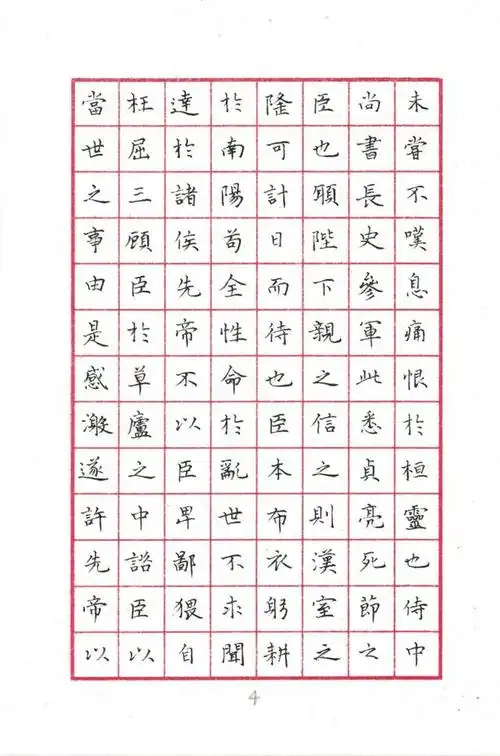 未嘗不嘆息痛恨於桓靈也侍中
尚書長史參軍此悉貞亮死節之
臣也願陛下親之信之則漢室之
隆可計日而待也臣本布衣躬耕
於南陽苟全性命於亂世不求聞
達於諸侯先帝不以臣卑鄙猥自
枉屈三顧臣於草廬之中諮臣以
當世之事由是感激遂許先帝以
4